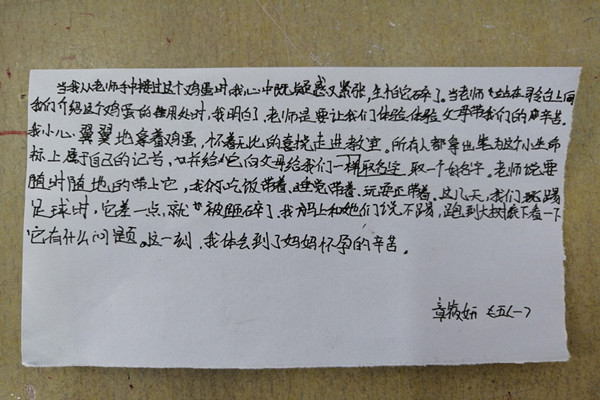 当我从老师手中接过这个鸡蛋时我心中既疑惑又紧张,生怕它碎了。当老师站在讲台上向
我们介绍这个鸡蛋的用处时,我明白了,老师是要让我们体验体验父母带我们的辛苦。
我小心翼翼地拿着鸡蛋,怀着无比的喜悦走进教室。所有人都拿出笔为这个小生命
标上属于自己的记号,并给它向父母给我们一样取名字取一个名字。老师说要
随时随地的带上它,我们吃饭带着、睡觉带着、玩耍还带着。这几天,我们踢
足球时,它差一点,就被砸碎了,我马上和她们说不踢,跑到大树底下看一下
它有什么问题。这一刻,我体会到了妈妈怀孕的辛苦。
章筱妍 《五(一)